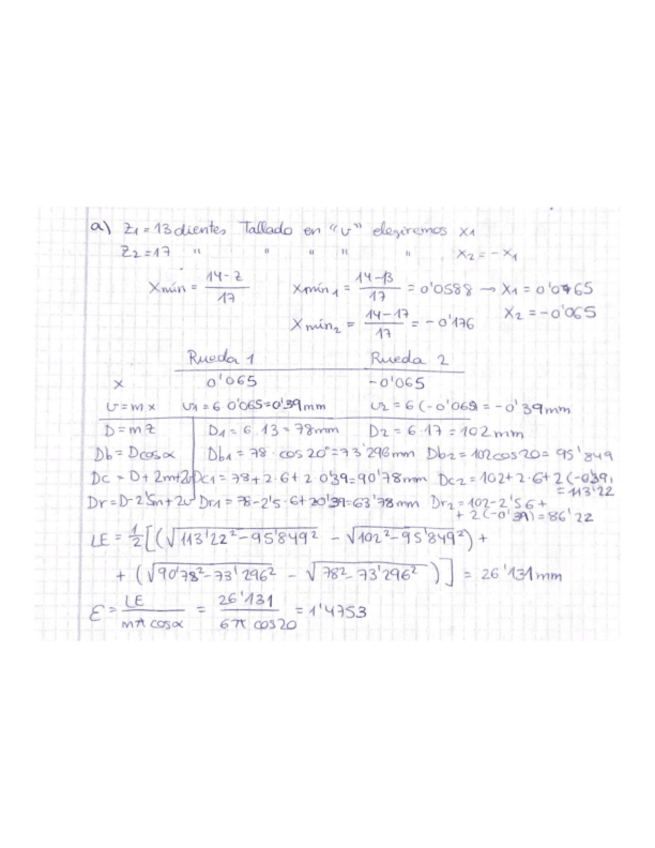 a) Z1 = 13 dientes Tallado en "v" elegiremos x1
Z2 = 17 " " " " " x2 = -x1
Xmín = 14-z / 17 Xmín1 = 14-13 / 17 = 0'0588 → X1 = 0'065
Xmín2 = 14-17 / 17 = -0'176 X2 = -0'065
Rueda 1 Rueda 2
x 0'065 -0'065
v = m x v1 = 6 0'065 = 0'39mm v2 = 6 (-0'065 = -0'39mm
D = mZ D1 = 6 · 13 = 78mm D2 = 6 · 17 = 102mm
Db = Dcosα Db1 = 78 · cos 20° = 73'296mm Db2 = 102cos20 = 95'849
Dc = D + 2m+2v Dc1 = 78 + 2·6 + 2 0'39 = 90'78mm Dc2 = 102 + 2·6 + 2(-0'39) = 113'22
Dr = D-2'5m + 2v Dr1 = 78-2'5·6+20'39 = 63'78mm Dr2 = 102-2'5 6 + + 2(-0'39) = 86'22
LE = 1/2 [(√113'22²-95'849² - √102²-95'849²) +
+ (√90'78²-73'296² - √78²-73'296²)] = 26'131mm
ε = LE / mπ cosα = 26'131 / 6π cos20 = 1'4753